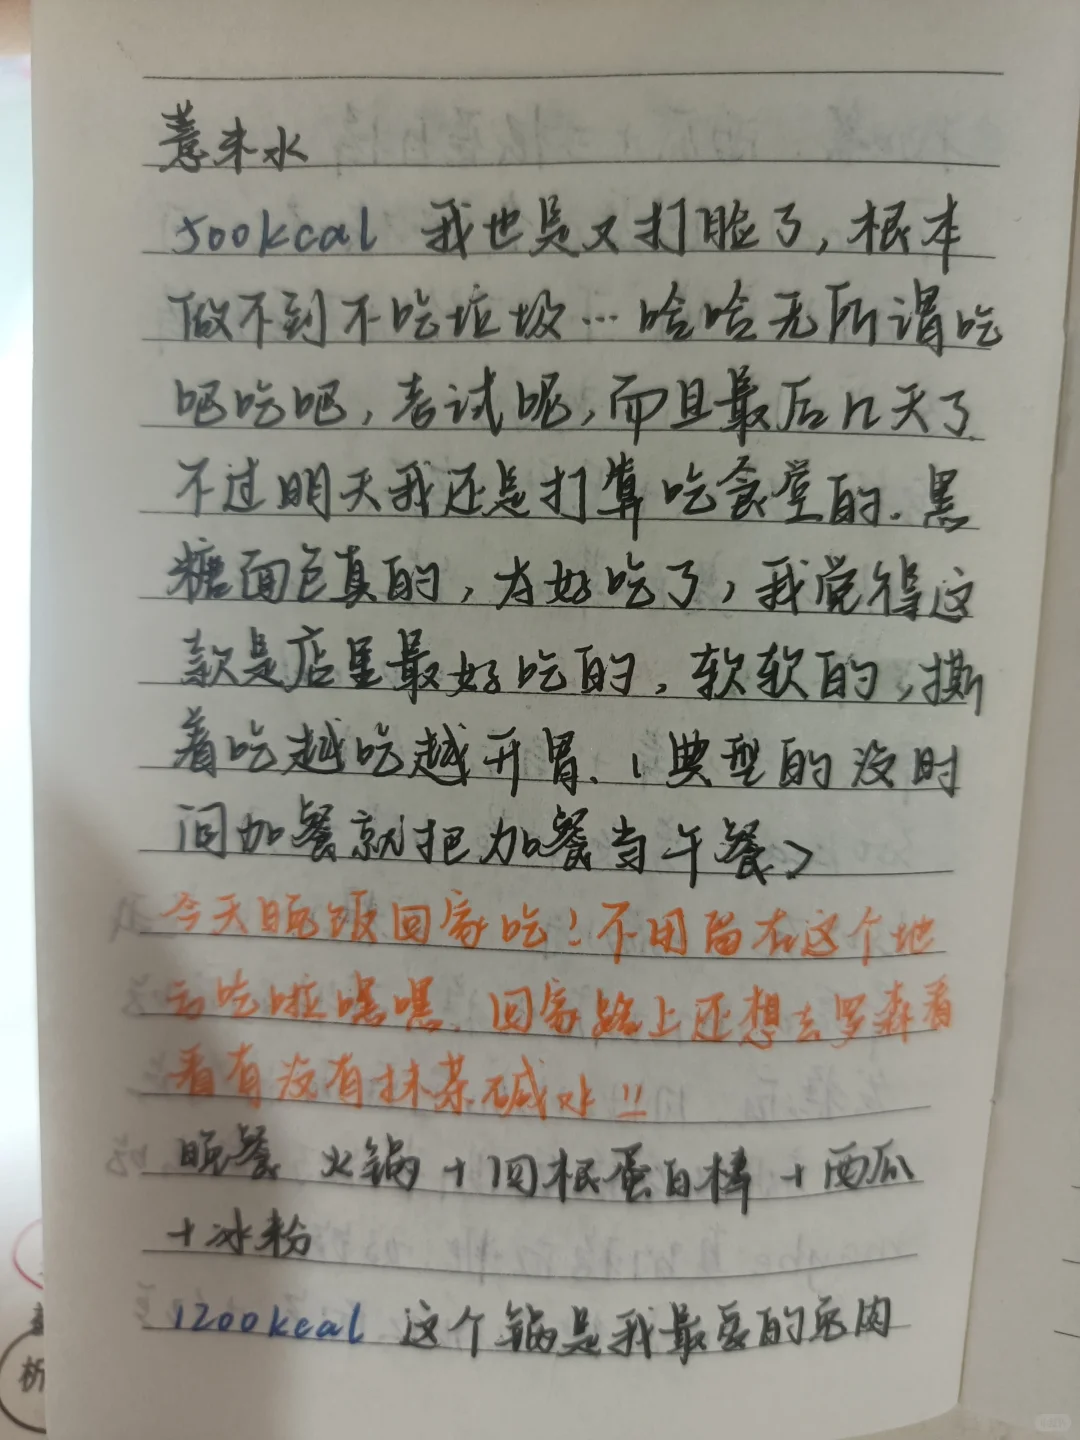 薏米水
500kcal 我也是又打脸了,根本
做不到不吃垃圾…哈哈无所谓吃
吧吃吧,考试呢,而且最后几天了
不过明天我还是打算吃食堂的.黑
糖面包真的,太好吃了,我觉得这
款是店里最好吃的,软软的,撕
着吃越吃越开胃、(典型的没时
间加餐就把加餐当午餐)
今天晚饭回家吃!不用留在这个地
方吃啦嘿嘿、回家路上还想去罗森看
看有没有抹茶碱水!!
晚餐 火锅+四根蛋白棒+西瓜
+冰粉
1200kcal 这个锅是我最爱的兔肉
析